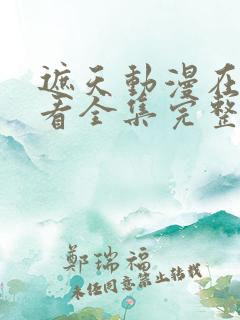 遮天動漫在
看全集完整
鄭瑞福
未经同意禁止转载